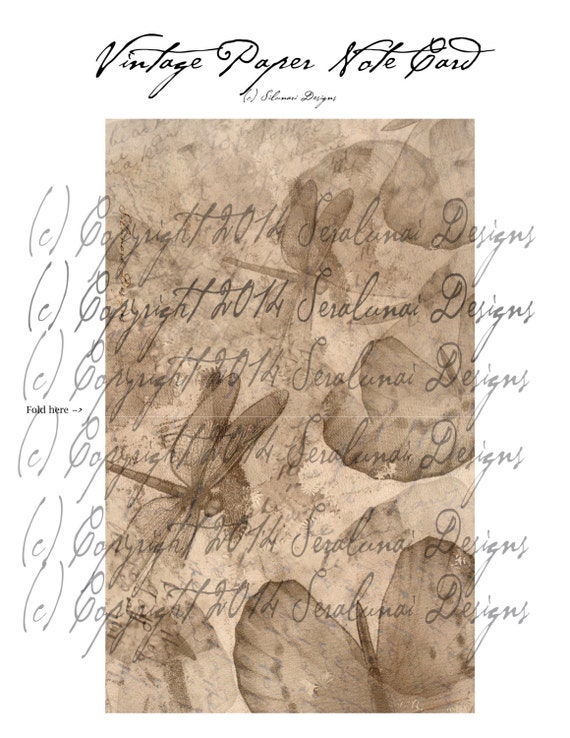 Vintage Paper Note Card
(c) Selunari Designs
(c) Copyright 2014 Seralunai Designs
(c) Copyright 2014 Seralunai Designs
(c) Copyright 2014 Seralunai Designs
Fold here -->
(c) Copyright 2014 Seralunai Designs
(c) Copyright 2014 Seralunai Designs
(c) Copyright 2014 Seralunai Designs